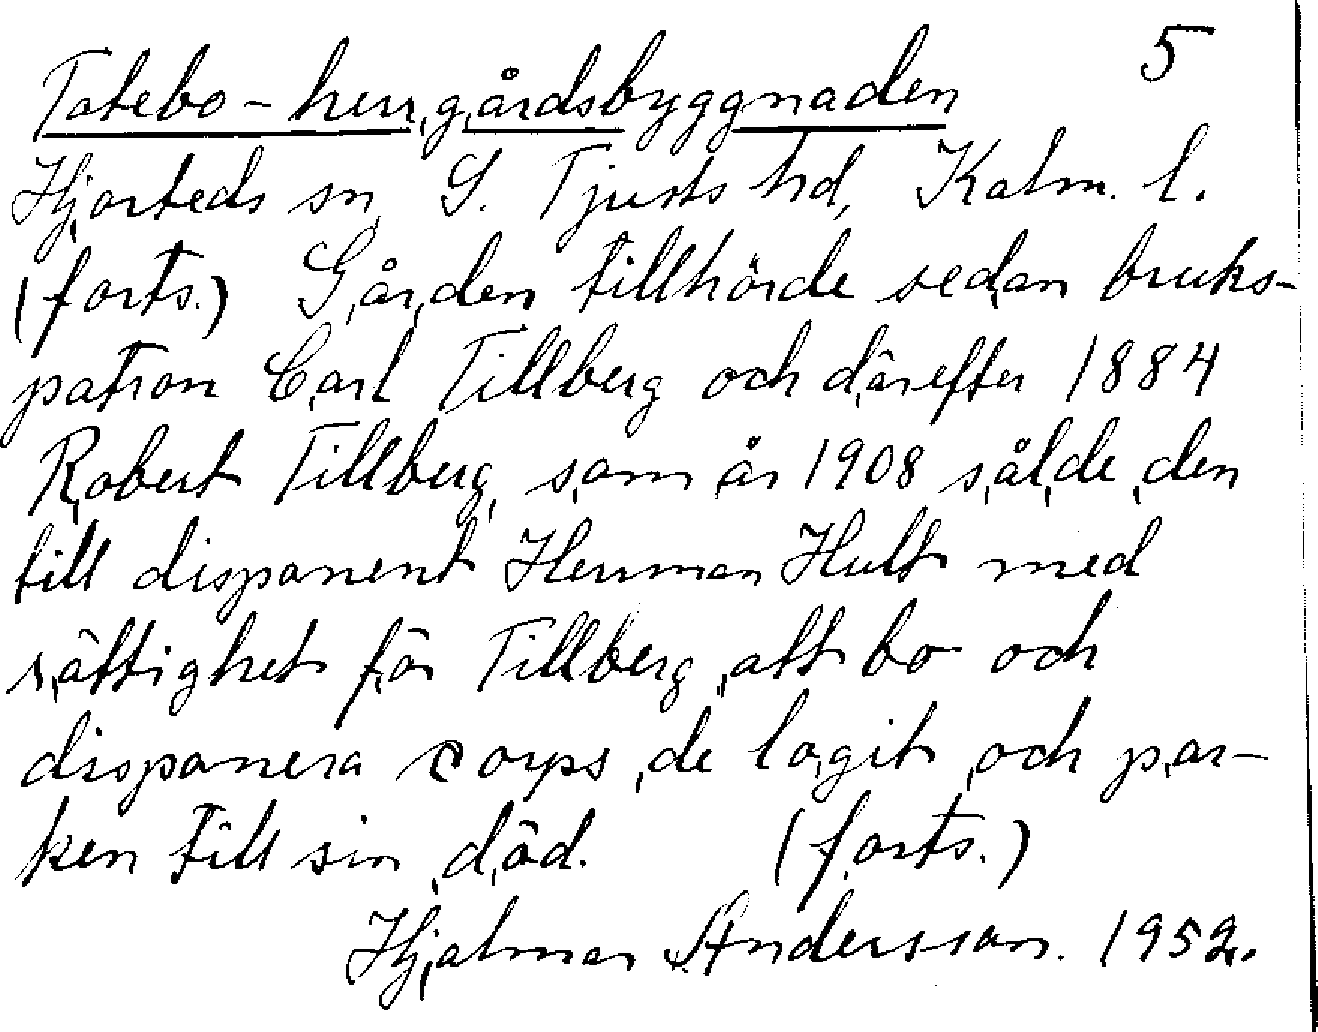 5
Totebo - herrgårdsbyggnaden
Hjorteds sn, S. Tjusts hd, Kalm. l.
(forts.) Gården tillhörde sedan bruks-
patron Carl Tillberg och därefter 1884
Robert Tillberg, som år 1908 sålde den
till disponent Herman Hult med
rättighet för Tillberg att bo och
disponera corps de logit och par-
ken till sin död. (forts.)
Hjalmar Andersson. 1952.